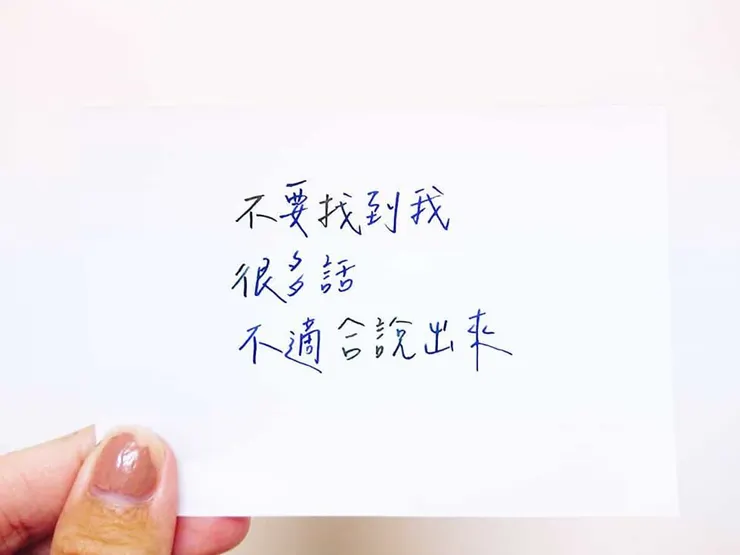 不要找到我
很多話
不適合說出來